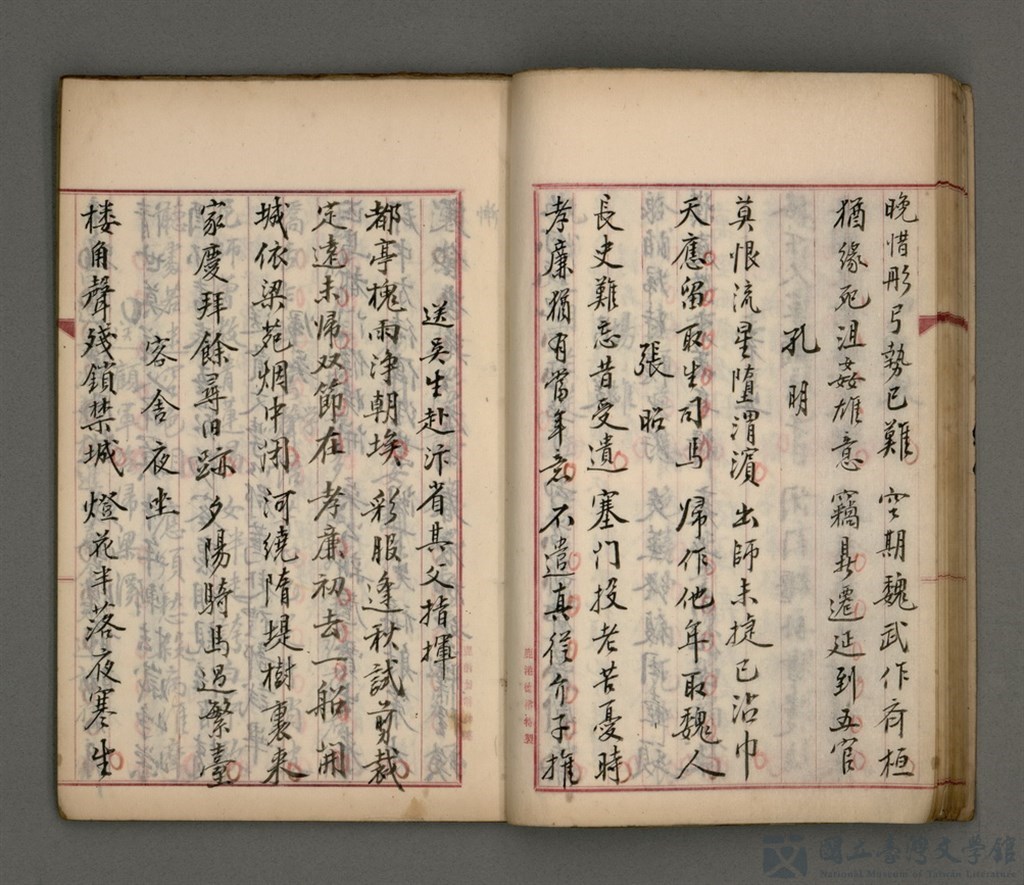 晚惜彤弓勢已難 空期魏武作齊桓
猶緣死沮姦雄意 竊鼎遷延到五官
孔明
莫恨流星墮渭濱 出師未捷已沾巾
天應留取生司馬 歸作他年取魏人
張昭
長史難忘昔受遺 塞門投老苦憂時
孝廉猶有當年意 不遣真從介子推
送吴生赴汴省其父指揮
都亭槐雨浄朝埃 彩服逢秋試剪裁
定遠未歸双節在 孝廉初去一船開
城依梁苑烟中闭 河繞隋堤樹裏来
家慶拜餘尋旧跡 夕陽騎馬過繁臺
客舍夜坐
楼角聲殘鎖禁城 燈花半落夜寒生
國立臺灣文學館
National Museum of Taiwan Literature